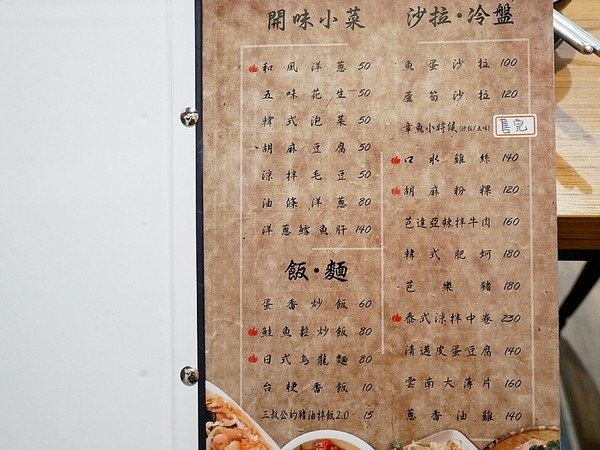 開味小菜
和風洋蔥 50
五味花生 50
韓式泡菜 50
胡麻豆腐 50
涼拌毛豆 50
油條洋蔥 80
洋蔥鱈魚肝 140
飯·麵
蛋香炒飯 60
鮭魚鬆炒飯 80
日式烏龍麵 80
台梗香飯 10
三叔公的豬油拌飯2.0 15
沙拉·冷盤
魚蛋沙拉 100
蘆筍沙拉 120
章魚小時候(沙拉/五味) 售完
口水雞絲 140
胡麻粉粿 120
芭達亞辣拌牛肉 160
韓式肥蚵 180
芭樂豬 180
泰式涼拌中卷 230
清邁皮蛋豆腐 140
雲南大薄片 160
蔥香油雞 140